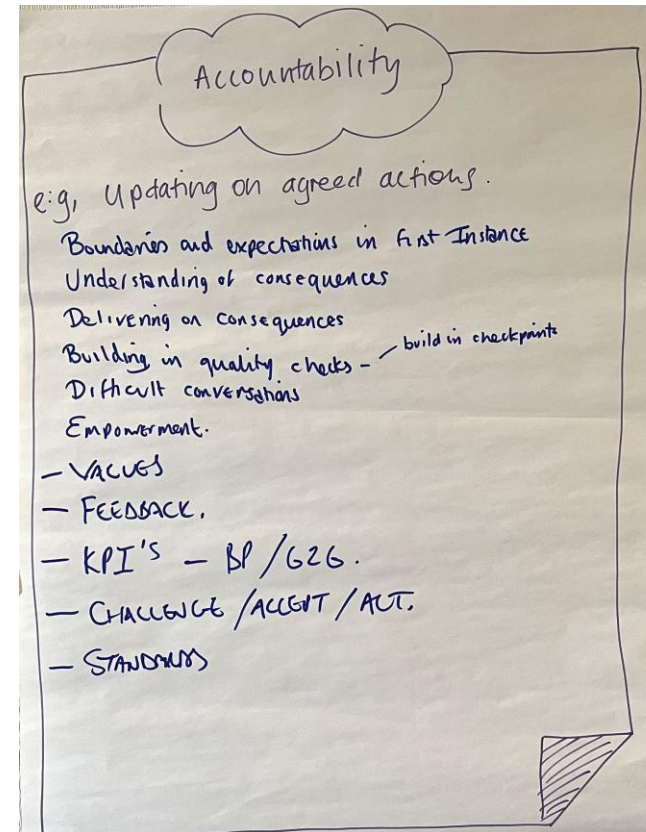 Accountability
e.g, Updating on agreed actions.
Boundaries and expectations in first Instance
Understanding of consequences
Delivering on consequences
Building in quality checks - build in checkpoints
Difficult conversations
Empowerment.
- VALUES
- FEEDBACK.
- KPI'S - BP/G2G.
- CHALLENGE/ACCEPT/ACT.
- STANDARDS